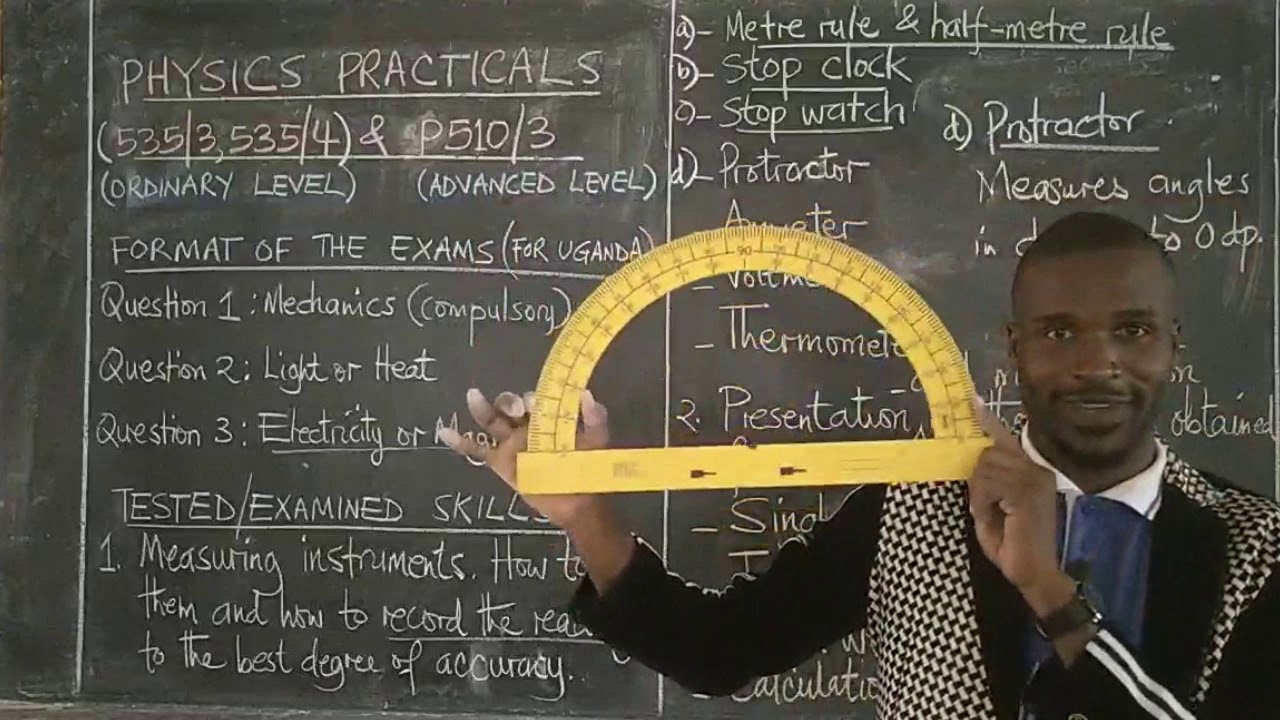 PHYSICS PRACTICALS
(535/3, 535/4) & P510/3
(ORDINARY LEVEL) (ADVANCED LEVEL)
FORMAT OF THE EXAMS (FOR UGANDA)
Question 1 : Mechanics (compulsory)
Question 2 : Light or Heat
Question 3 : Electricity or
TESTED/EXAMINED
1. Measuring instruments. How
them and how to record the
to the best degree of accuracy.
a)- Metre rule & half-metre rule
b)- Stop clock
c)- Stop watch
d)- Protractor
- Thermomete
2. Presentation
d) Protractor
Measures angles
in to 0 dp.
obtained
90